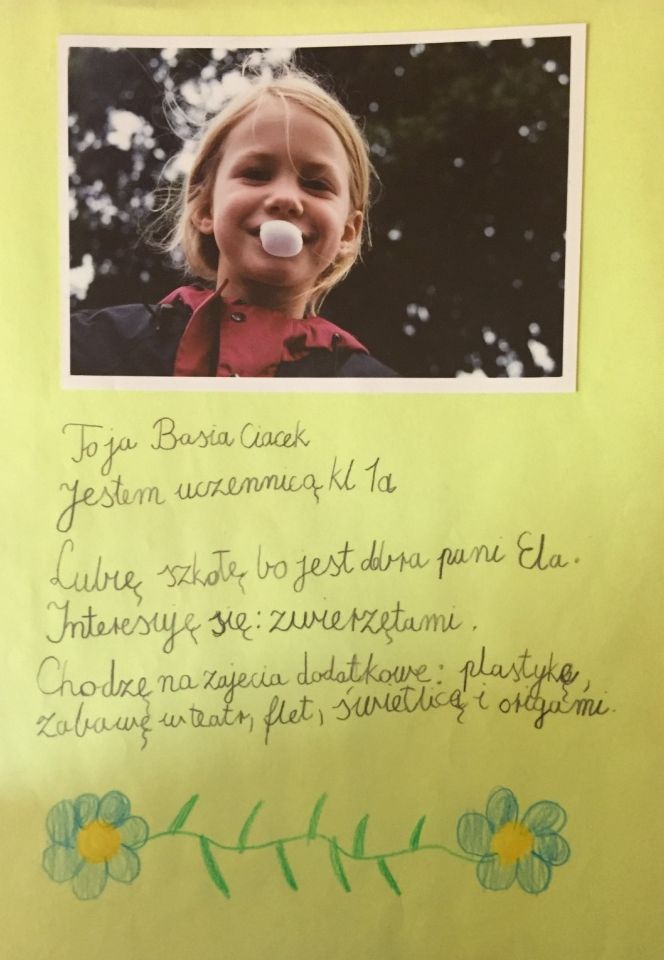 To ja Basia Ciacek
Jestem uczennicą kl 1a
Lubię szkołę bo jest dobra pani Ela.
Interesuję się: zwierzętami.
Chodzę na zajecia dodatkowe: plastykę,
zabawę w teatr, flet, świetlicę i origami.